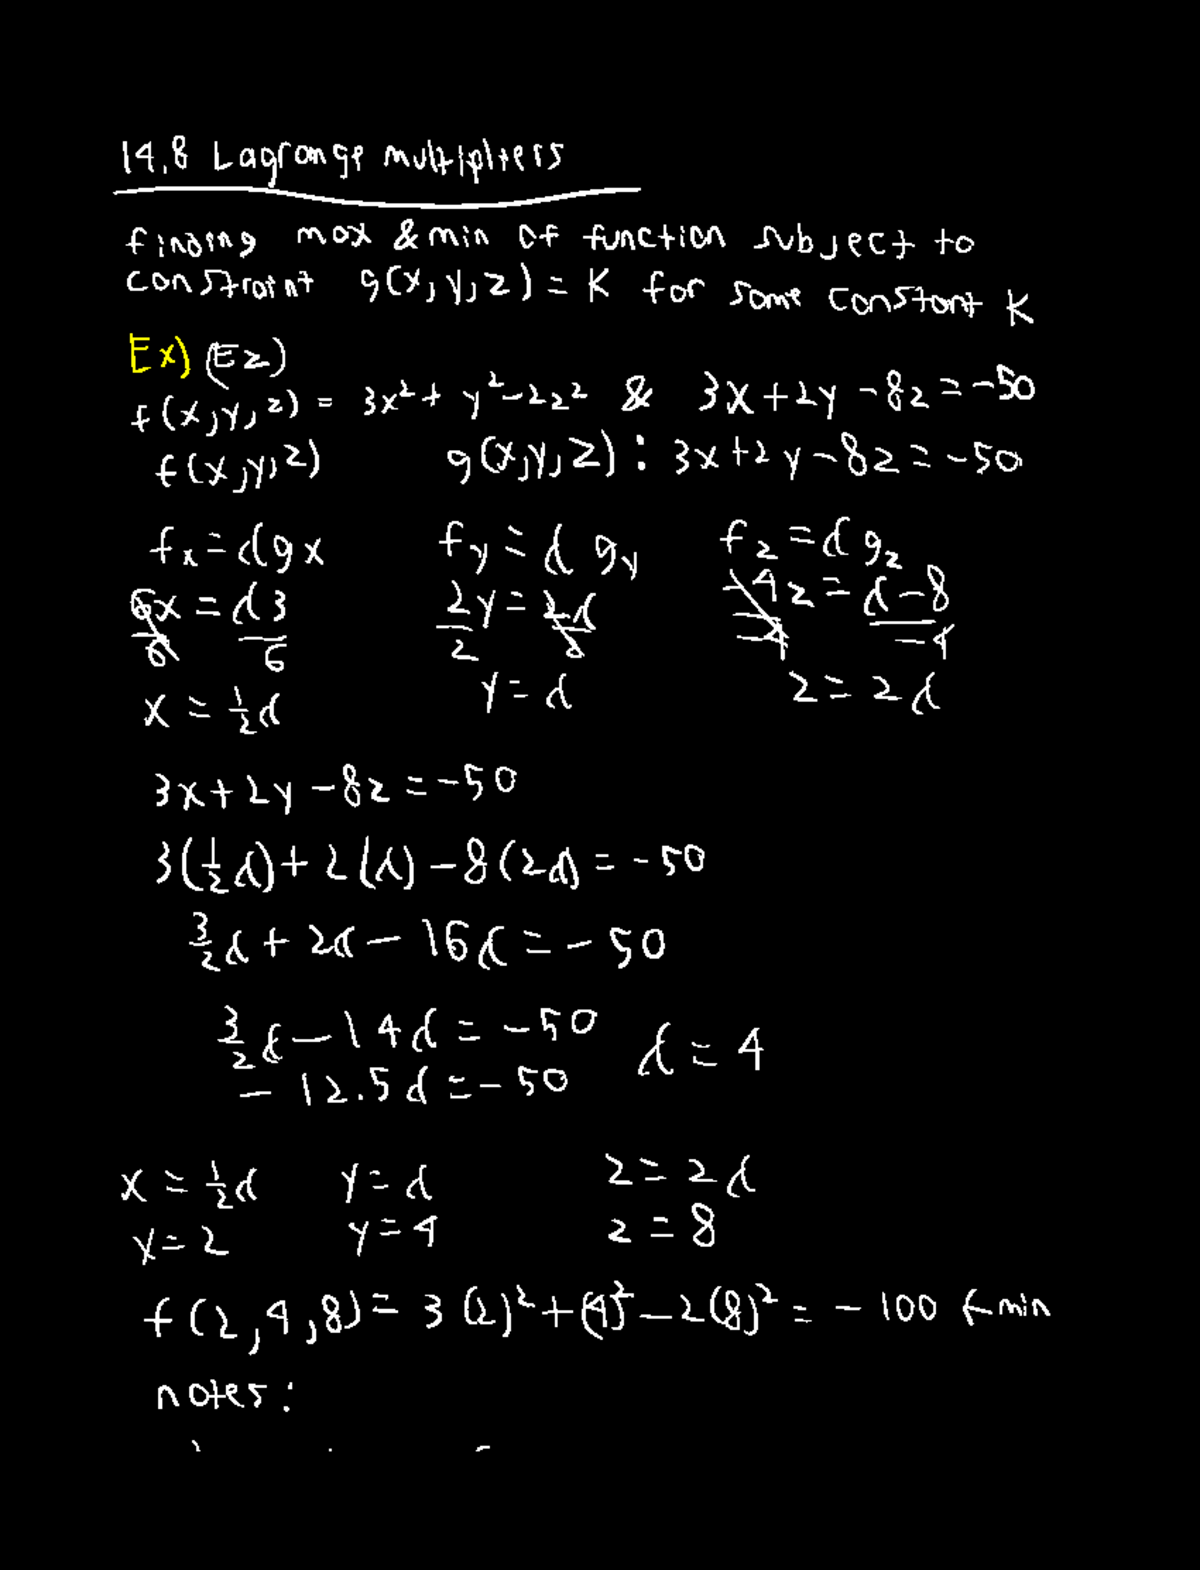 14.8 Lagrange multipliers
finding max & min of function subject to
constraint g(x,y,z) = K for some constant K
Ex) (Ez)
f(x,y,z) = 3x²+ y²-2z² & 3x+2y-8z=-50
f(x,y,z) g(x,y,z): 3x+2y-8z=-50
fx=λgx fy=λgy fz=λgz
6x=λ3 2y=2λ -4z=λ-8
6 6 2 2 -4 -4
x=½λ y=λ z=2λ
3x+2y-8z=-50
3(½λ)+2(λ)-8(2λ)=-50
3/2λ+2λ-16λ=-50
3/2λ-14λ=-50 λ=4
-12.5λ=-50
x=½λ y=λ z=2λ
x=2 y=4 z=8
f(2,4,8)=3(2)²+(4)²-2(8)²=-100 ← min
notes: